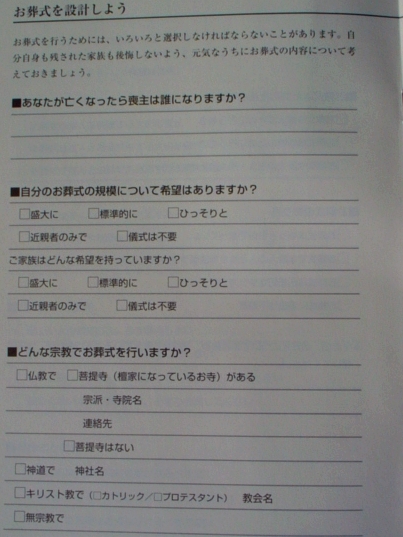 お葬式を設計しよう
お葬式を行うためには、いろいろと選択しなければならないことがあります。自
分自身も残された家族も後悔しないよう、元気なうちにお葬式の内容について考
えておきましょう。
■あなたが亡くなったら喪主は誰になりますか？
■自分のお葬式の規模について希望はありますか？
□盛大に　□標準的に　□ひっそりと
□近親者のみで　□儀式は不要
ご家族はどんな希望を持っていますか？
□盛大に　□標準的に　□ひっそりと
□近親者のみで　□儀式は不要
■どんな宗教でお葬式を行いますか？
□仏教で　□菩提寺（檀家になっているお寺）がある
宗派・寺院名
連絡先
□菩提寺はない
□神道で　神社名
□キリスト教で（□カトリック／□プロテスタント）　教会名
□無宗教で